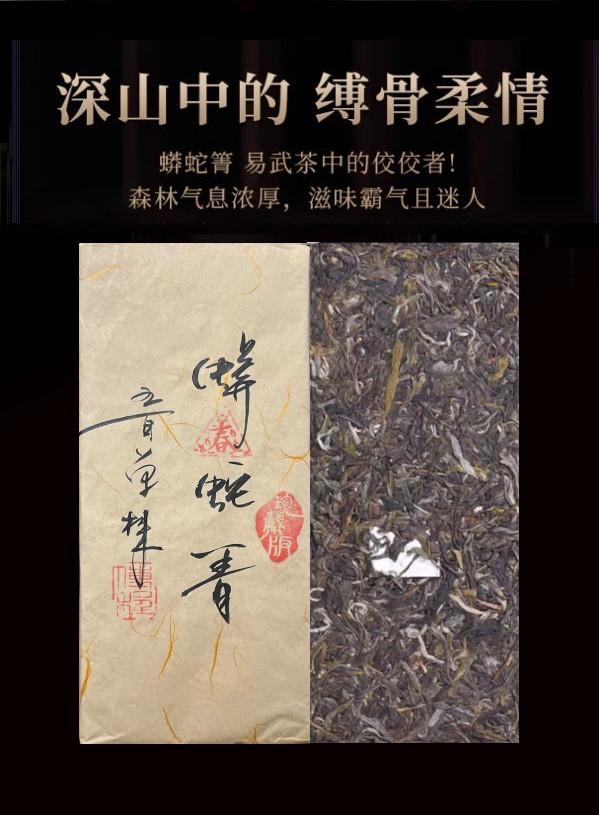 深山中的 缚骨柔情
蟒蛇箐 易武茶中的佼佼者!
森林气息浓厚，滋味霸气且迷人
蟒蛇菁
春
珍藏版
单株